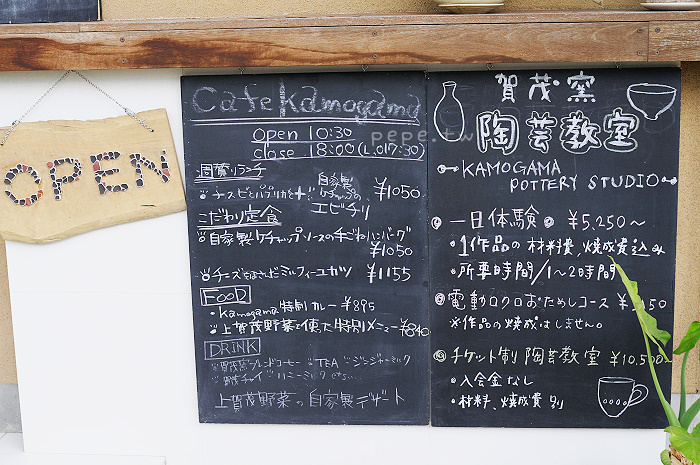 OPEN
Cafe Kamogama
open 10:30
close 18:00 (L.O 17:30)
pepe.tw
週替りランチ
自家製
エビチリ
¥1050
こだわり定食
自家製ケチャップソースの手ごねハンバーグ
¥1050
チーズをはさんだミルフィーユカツ ¥1155
FOOD
・Kamogama 特製カレー ¥895
・上賀茂野菜を使った特別メニュー ¥840
DRINK
賀茂窯ブレンドコーヒー TEA ジンジャーミルク
チャイ ハニーミルク
上賀茂野菜の自家製デザート
賀茂窯
陶芸教室
KAMOGAMA
POTTERY STUDIO
一日体験 ¥5,250〜
・1作品の材料費、焼成費込み
・所要時間/1〜2時間
電動ロクロおためしコース
※作品の焼成はしません。
チケット制 陶芸教室 ¥10,500〜
・入会金なし
・材料、焼成費 別